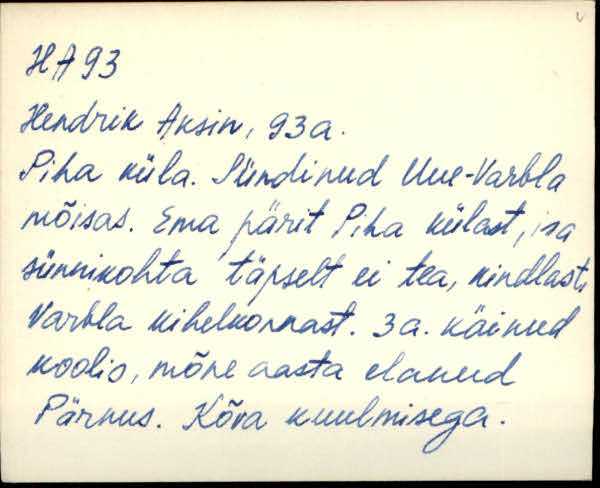 HA93
Hendrik Aksin, 93a.
Piha küla. Sündinud Uue-Varbla
mõisas. Ema pärit Piha külast, isa
sünnikohta täpselt ei tea, kindlasti
Varbla kihelkonnast. 3a. käinud
koolis, mõne aasta elanud
Pärnus. Kõva kuulmisega.